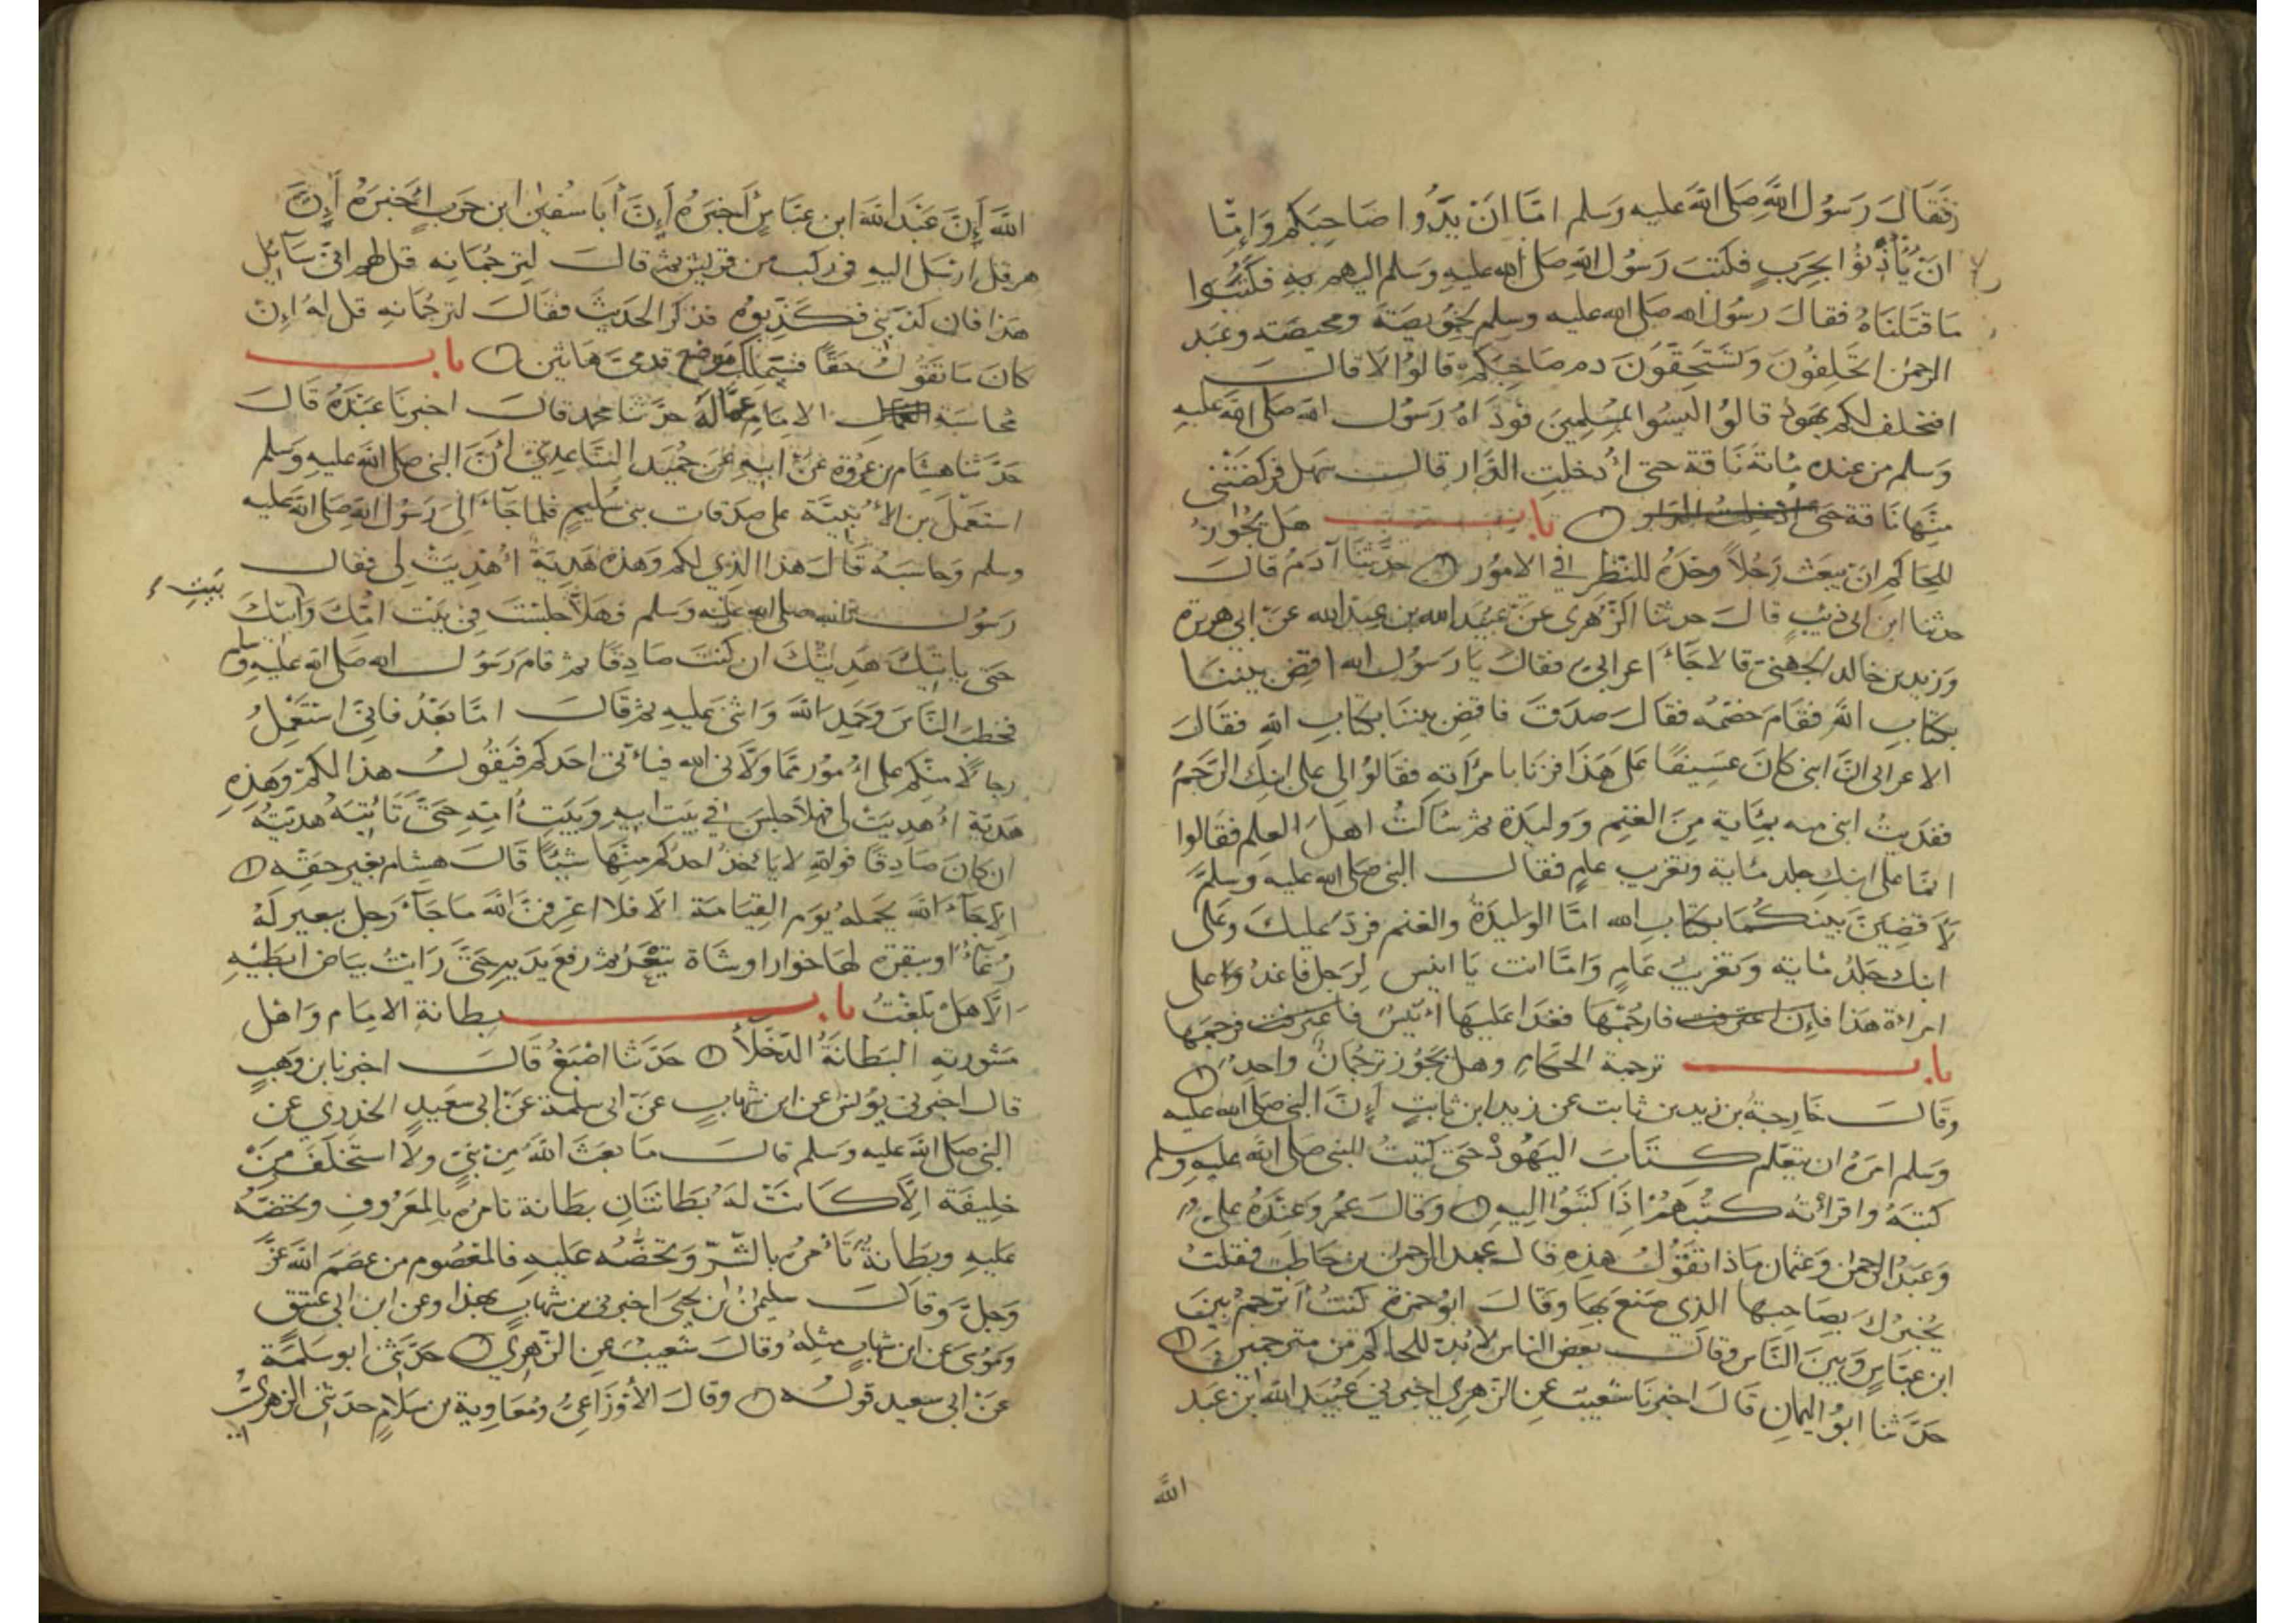 فَقَالَ رَسُولُ اللَّهِ صَلَى اللَّهُ عليه وَسَلم امَّا انَ يَدُوا صَاحِبَكم وَامَّا
انْ يُأْذِنُوا بحَرَبٍ فكَتَبَ رَسُولُ اللهِ صَلى الله عليهِ وَسَلم اليهم بِهِ فكَتَبُوا
مَا قَتَلنَاهُ فقالَ رسُولُ الله صَلى الله عليه وسَلم لحُوَيصَة ومحيصَة وعَبد
الرحمن اتحَلِفُونَ وَتسَتَحِقوَنَ دم صَاحِبكم قالوُا لا قالَ
افتحلف لكم يهَود قالوُا ليسُوا بمُسْلِمينَ فَودَاهُ رَسُول الله صَلى الله عَليهِ
وَسَلم من عنده مائة نَاقة حتى اُدخلتِ الدَّار قالَ سَهل فركضَتْني
منهَا نَاقة باب هَل يجُوز
للحَاكم ان يَبعَث رَجُلاً وحدَهُ للنَّظَرِ في الامُور حدَّثنَا آدَمُ قالَ
حدثنا ابن ابي ذئبٍ قالَ حدثنا الزّهري عَن عبيَد الله بن عبدَ الله عَن ابي هريرة
وَزيد بن خالد الجهَنيّ قالا جَاءَ اعرابيٌ فقالَ يَا رَسُول الله اقضِ بينَنَا
بكتَابِ اللهِ فقَامَ خصمُه فقالَ صدَقَ فاقضِ بيننَا بكتابِ اللهِ فقَالَ
الاعرابي انَّ ابني كانَ عَسِيفًا عَلى هَذَا فزنَا بامرَأتهِ فقَالوُا لي على ابنِك الرَّجَمُ
ففدَيتُ ابني منه بمائةٍ مِنَ الغنَم وَوليدَة ثم سَالتُ اهلَ العِلم فقَالوا
انما على ابنِك جلد مائة وتغريب عامٍ فقالَ النبي صَلى الله عليه وسَلمَّ
لاَقضِيَنَّ بينكُمَا بكتَابِ الله امَّا الوليدَةُ والغنم فردٌّ عليكَ وعَلى
ابنك جَلدُ مائة وَتغريبُ عَامٍ وَامَّا انت يَا انيس لِرَجل فاغدُ على
امراة هَذا فارجُمْهَا فغدَا عليهَا انَيْس فرجمَهَا
باب ترجمة الحكَام وهل يجَوُز ترجُمانٌ واحِدٌ
وقَالَ خَارجةُ بن زيد بن ثابت عن زيد ابن ثابتٍ اِنَّ النبي صَلى الله عليه
وَسَلم امَرَهُ ان يتعَلم كتَابَ اليَهُودْ حَتى كتبتُ للنبي صَلى الله عَليهِ وسلم
كتبَهُ واقرأتهُ كتُبهَمْ اذَا كتَبَوُا اليهِ وَقالَ عمُر وَعِنْدَهُ عليٌ
وَعَبَدُ الرحمن وَعثمان مَاذا تقَوُلُ هَذِهِ قالَ عَبدَ الرحمن بن حَاطبٍ فقلتُ
يخُبرُكَ بِصَاحِبِهَا الذي صَنعَ بهَا وقَالَ ابوُ جمرَة كنتُ اُترَجمُ بينَ
ابن عبّاسٍ وَبينَ النَّاسِ وقَالَ بعض الناس لاَ بُدّ للحاكم من مترجمين
حَدَّثنا ابوُ اليمانِ قَالَ اخبرنَا شعيب عن الزهري اخبرني عُبَيد الله ابن عَبد
الله
اللَّهِ اِنَّ عَبْدَ اللهِ ابن عبّاسٍ اَخبَرَهُ اِنَّ اَبَا سفيٰن ابن حَربٍ اَخبرَهُ اِنَّ
هرقل ارسَل اليهِ في ركب من قريش ثم قالَ لتِرجُمَانهِ قل لهم اني سَائِل
هَذا فان كذبني فكَذِّبوُه فذكر الحَديثَ فقَالَ لترجُمَانهِ قل لهُ اِنْ
كانَ مَا تقَوُلُ حقًا فسَيَملِكُ مَوضعَ قدمَيَّ هَاتَين باب
محاسَبة الامِامِ عمَّالَهُ حدَّثنا محمد قالَ اخبرنَا عَبَدَةُ قَالَ
حَدَّثنا هشَام بن عروَة عَن ابيهِ عَن حميد السَّاعدِيّ اَنَّ النبي صَلى الله عليهِ وَسَلم
استَعَملَ بن الاُتبيَّة على صَدَقات بني سُليمٍ فلما جَآءَ الى رَسُول الله صَلى الله عَليه
وسلم وَحاسَبهُ قَالَ هَذا الذِي لكم وَهَذه هَديَة اُهْدِيَتْ لي فقالَ
رَسوُل الله صلى الله عليه وسَلم فهَلَّا جلَسْتَ في بَيْت ابيك وَامّكَ
بَيتِ
حَتى ياتيَكَ هَدِيتُكَ ان كنتَ صَادِقًا ثم قامَ رَسَوُل الله صَلى الله عليهِ وسلم
فخطبَ النَّاسَ وَحَمِدَ اللهَ وَاثنى عَليهِ ثم قَالَ امَّا بَعْدُ فاني اسَتَعْمِلُ
رجالًا منكم على اُمُور ممَّا وَلَّانى الله فياتي احَدكم فَيقَوُلُ هذا لكم وَهَذِهِ
هَديّة اُهدِيَتْ لي فهلاَّ جلسَ في بَيت ابيهِ وَبَيتِ اُمّهِ حَتىَّ تَاتِيَهُ هَدِيّتُهُ
ان كانَ صَادِقًا فواللهِ لا يَاخذُ احدُكم مِنْهَا شيئًا قَالَ هشام بغير حَقّهِ
الاَّ جَآءَ اللهَ يحمله يوَم القِيَامَة الاَ فلاَ اَعرفنَّ اللهَ مَا جَاءَ رَجل ببعيرٍ لهُ
رُغآءٌ او ببقرة لهَا خوار او شَاة تيعَرُ ثم رفعَ يَدَيهِ حَتىَّ رَايتُ بيَاض ابطَيْهِ
الَا هَل بَلغْتُ باب بِطانةِ الامَام وَاهل
مَشورتهِ البطانَةُ الدّخَلاَءُ حَدَّثنا اصْبَغُ قَالَ اخبرنا بن وَهبٍ
قال اخبرني يوُنسُ عن ابن شهابٍ عَنْ ابي سلمَة عَن ابي سعَيدٍ الخدري عَن
النبي صَلى الله عليه وسَلم قالَ مَا بعَثَ اللهُ مِنْ نَبيٍّ ولا استَخلَفَ مِنْ
خليفَة اِلاَّ كَانتْ لهُ بطَانَتَانِ بطَانة تامُرهُ بالمَعرُوفِ وتحضّهُ
عَليهِ وبِطَانةٌ تَأمُرهُ بالشّرّ وَتحَضّهُ عَليهِ فالمعَصُوم من عصَمَ اللهُ عَزَّ
وَجَلَّ وَقالَ سليمٰنُ ابن يحيىَ اخبرني بن شهاب بهذا وعن ابن ابي عتيق
وَمُوسى عَن ابن شهابٍ مثلِهُ وقالَ شعيب عن الزهري حَدَّثني ابو سَلمَة
عَنْ ابي سعيد قولهُ وقالَ الأوْزَاعيُّ ومُعَاوية بن سَلامٍ حدَثني الزهريُّ